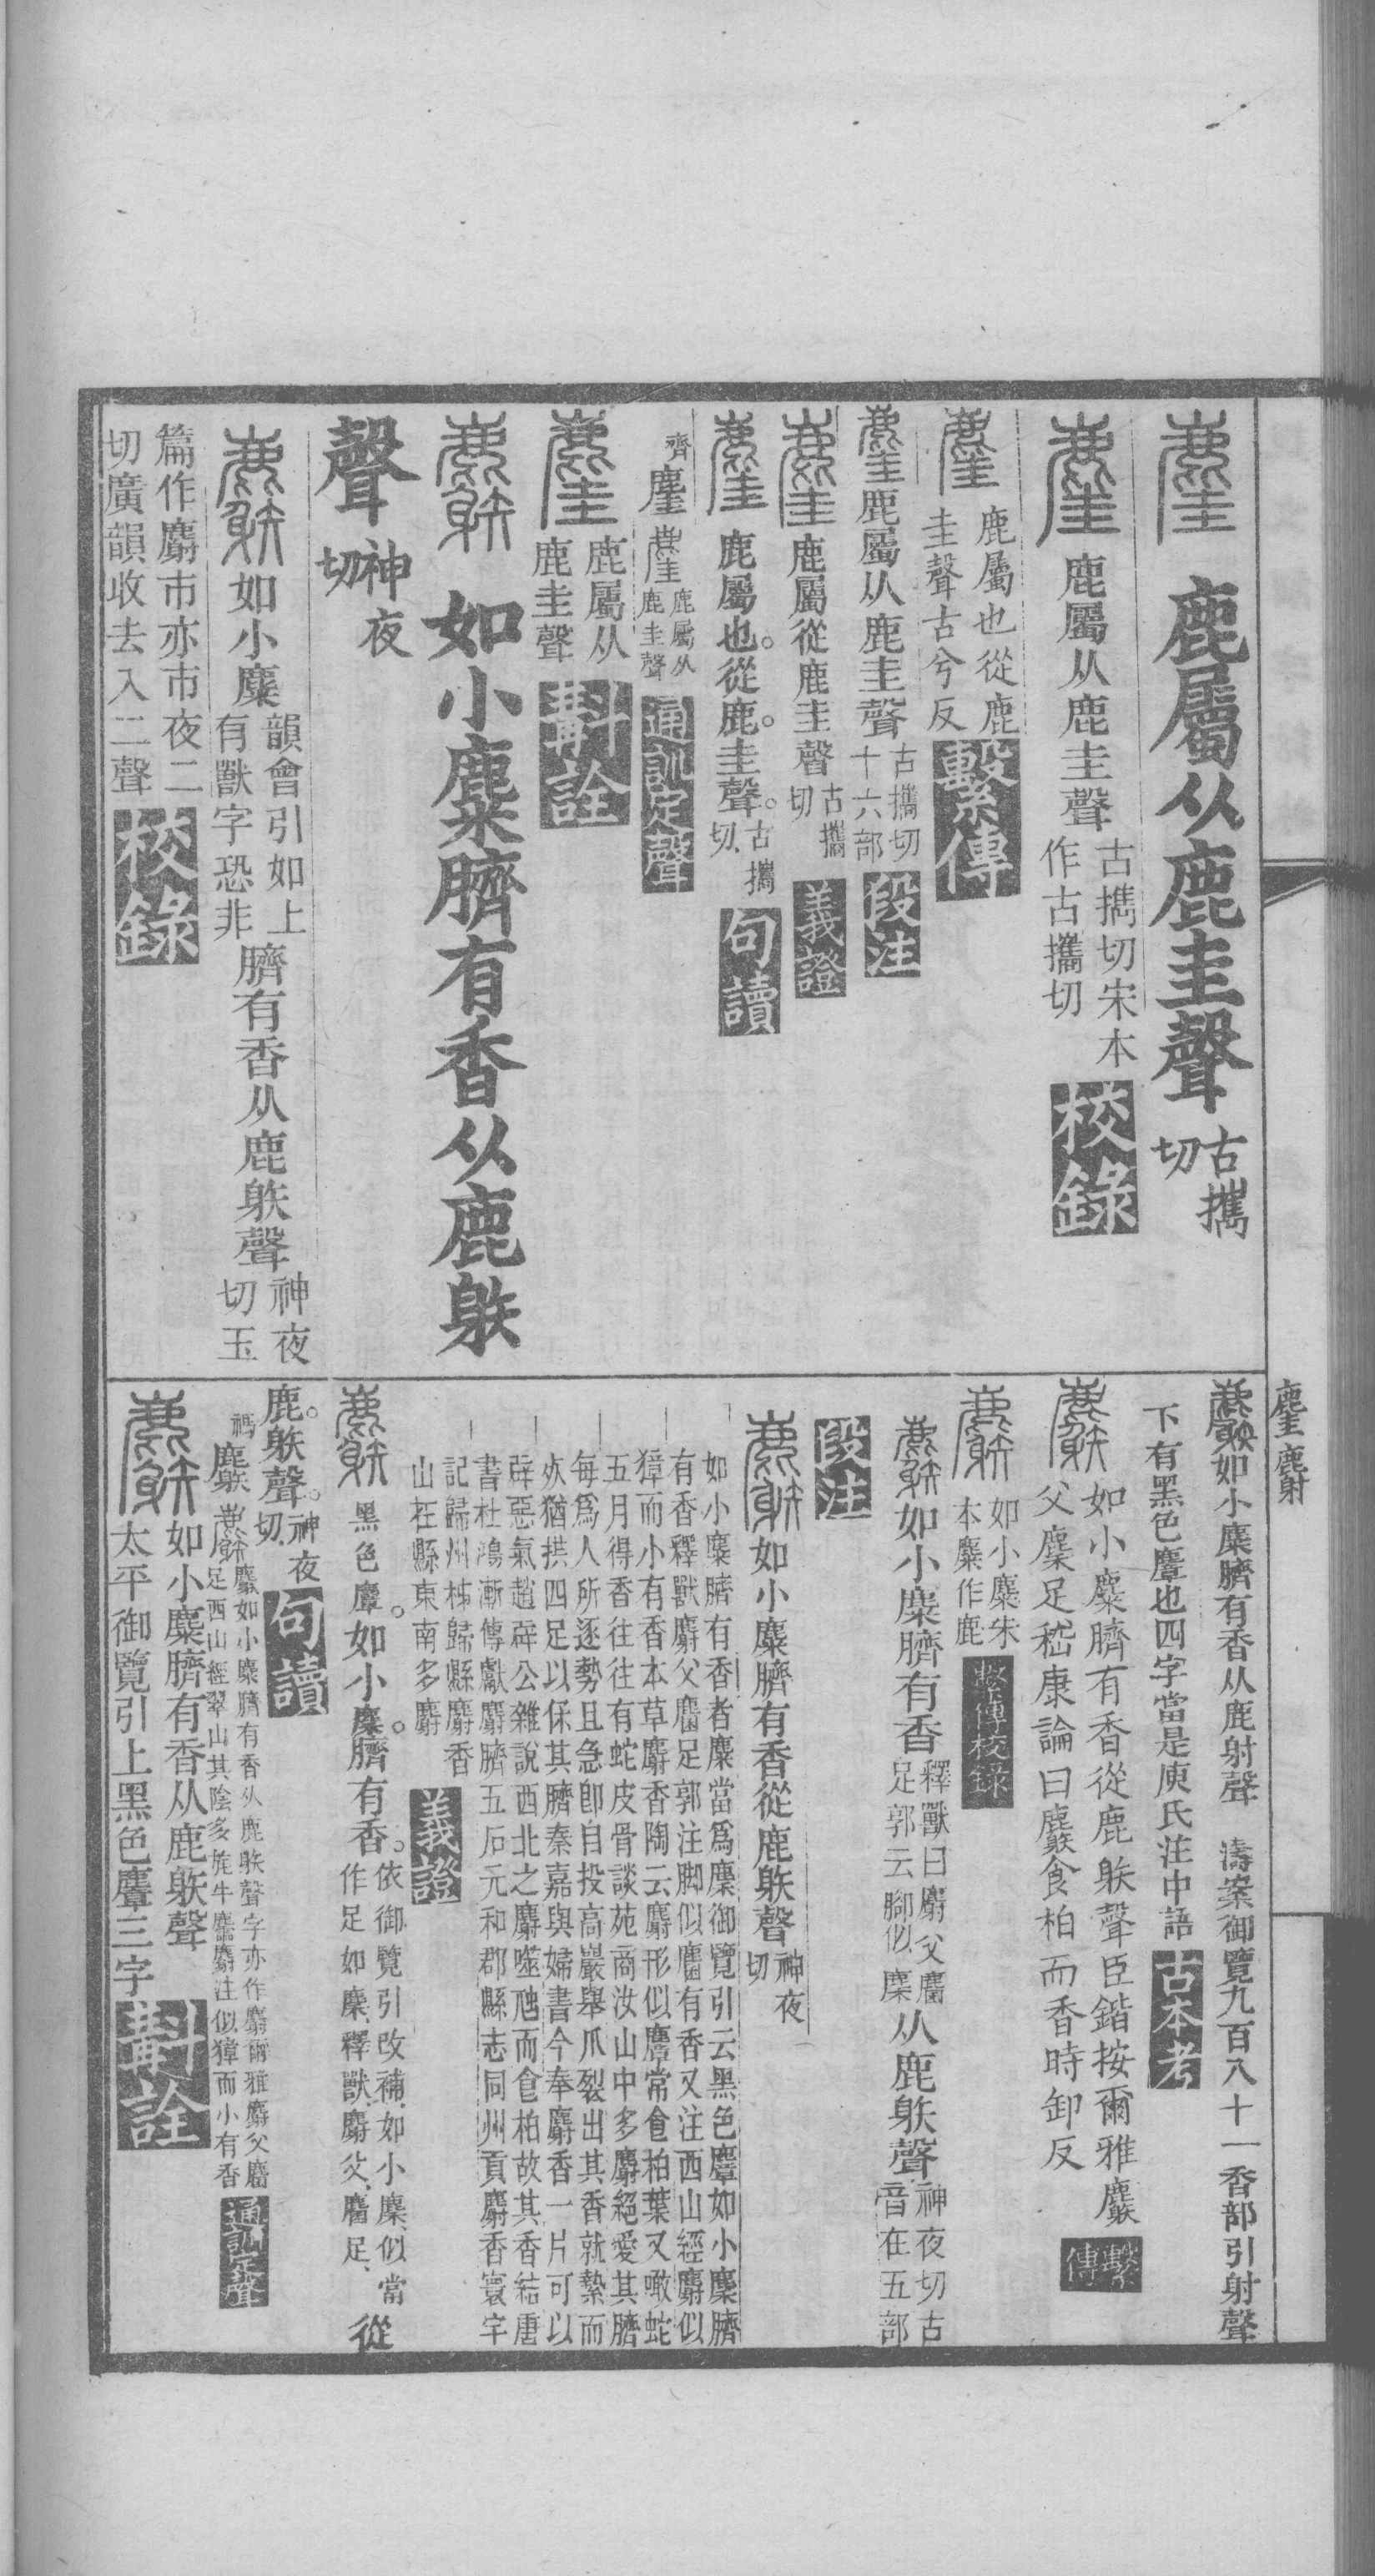 鹿屬从鹿圭聲古攜切
鹿屬从鹿圭聲古攜切宋本作古攜切 校錄
鹿屬也從鹿圭聲古兮反 繫傳
鹿屬从鹿圭聲古攜切十六部 段注
鹿屬從鹿圭聲古攜切 義證
鹿屬也。從鹿。圭聲。古攜切、 句讀
齊 鹿屬从鹿圭聲 通訓定聲
鹿屬从鹿圭聲 斠詮
如小麋臍有香从鹿䠶
聲神夜切
如小麋韻會引如上有獸字恐非臍有香从鹿䠶聲神夜切玉
篇作麝市亦市夜二切廣韻收去入二聲 校錄
如小麋臍有香从鹿射聲 濤案御覽九百八十一香部引射聲
下有黑色麞也四字當是庾氏注中語 古本考
如小麋臍有香從鹿䠶聲臣鍇按爾雅
父麕足嵇康論曰食柏而香時卸反 繫傳
如小麋朱本麋作鹿 繫傳校錄
如小麋臍有香釋獸曰麝父麕足郭云腳似麋从鹿䠶聲神夜切古音在五部
段注
如小麋臍有香從鹿䠶聲神夜切
如小麋臍有香者麋當爲麇御覽引云黑色麞如小麋臍
有香釋獸麝父麕足郭注脚似麕有香又注西山經麝似
獐而小有香本草麝香陶云麝形似麞常食柏葉又噉蛇
五月得香往往有蛇皮骨談苑商汝山中多麝絕愛其臍
每爲人所逐勢且急卽自投高巖舉爪裂出其香就縶而
死猶拱四足以保其臍秦嘉與婦書今奉麝香一片可以
辟惡氣趙辟公雜說西北之麝噬虺而食柏故其香結唐
書杜鴻漸傳獻麝臍五石元和郡縣志同州貢麝香寰宇
記歸州秭歸縣麝香
山在縣東南多麝 義證
黑色麞。如小麋。臍有香。依御覽引改補、如小麋、似當作足如麇、釋獸、麝父、麕足、從
鹿。䠶聲。神夜切、 句讀
禡 如小麋臍有香从鹿䠶聲字亦作麝爾雅麝父麕足西山經翠山其陰多旄牛麢麝注似獐而小有香 通訓定聲
如小麋臍有香从鹿䠶聲
太平御覽引上黑色麞三字 斠詮